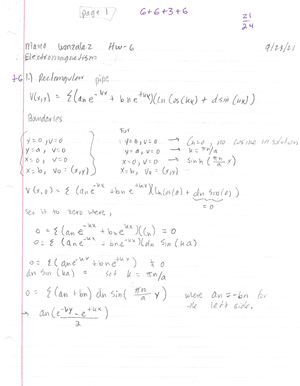 page 1
6+6+3+6
21
24
Gonzalez HW-6 9/23/21
Electromagnetism
+6 1.) Rectangular pipe
V(x,y) = Σ(an e^-kx + bn e^+kx)(Cn cos(kx) + d sin(kx))
Bandaries
For
y=0, v=0 y=0, v=0 → Cn=0, no cosine in solution
y=a, v=0 y=a, v=0 → k = πn/a
x=0, v=0 x=0, v=0 → sinh(πn/a x)
x=b, Vo=(x,y) x=b, Vo=(x,y)
V(x,0) = Σ(an e^-kx + bn e^+kx)(Cn cos(0) + dn sin(0))
= 0
set it to zero where,
0 = Σ(an e^-kx + bn e^+kx)(Cn) = 0
0 = Σ(an e^-kx + bn e^+kx)(dn sin(ka)
0 = Σ(an e^-kx + bn e^+kx) ≠ 0
dn sin(ka) = set k = πn/a
0 = Σ(an + bn) dn sin(πn/a y) where an = -bn for
the left side.
→ an(e^-ky - e^+kx)
2